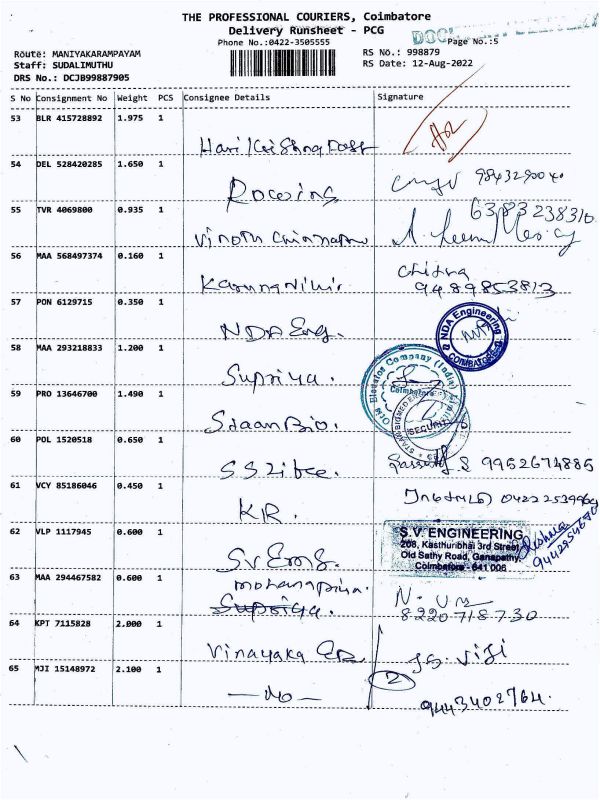 THE PROFESSIONAL COURIERS, Coimbatore
Delivery Runsheet - PCG
Phone No.:0422-3505555
Page No.:5
Route: MANIYAKARAMPAYAM
RS No.: 998879
Staff: SUDALIMUTHU
RS Date: 12-Aug-2022
DRS No.: DCJB99887905
S No Consignment No Weight PCS Consignee Details Signature
53 BLR 415728892 1.975 1
54 DEL 528420285 1.650 1
55 TVR 4069800 0.935 1
6383238310
Vinoth
56 MAA 568497374 0.160 1
Chitra
9489853813
57 PON 6129715 0.350 1
NDA Eng.
& NDA Engineering
COIMBATORE
58 MAA 293218833 1.200 1
Supriya.
Elevator Company (India)
Coimbatore
59 PRO 13646700 1.490 1
Staan Bio.
SECURITY
60 POL 1520518 0.650 1
9952674885
61 VCY 85186046 0.450 1
KR.
62 VLP 1117945 0.600 1
S.V. ENGINEERING
208, Kasthuribhai 3rd Street
Old Sathy Road, Ganapathy,
Coimbatore - 641 006
63 MAA 294467582 0.600 1
mohanapriya.
Supriya.
8220718730
64 KPT 7115828 2.000 1
Vinayaka
65 MJI 15148972 2.100 1
- No -
2
9443402764.